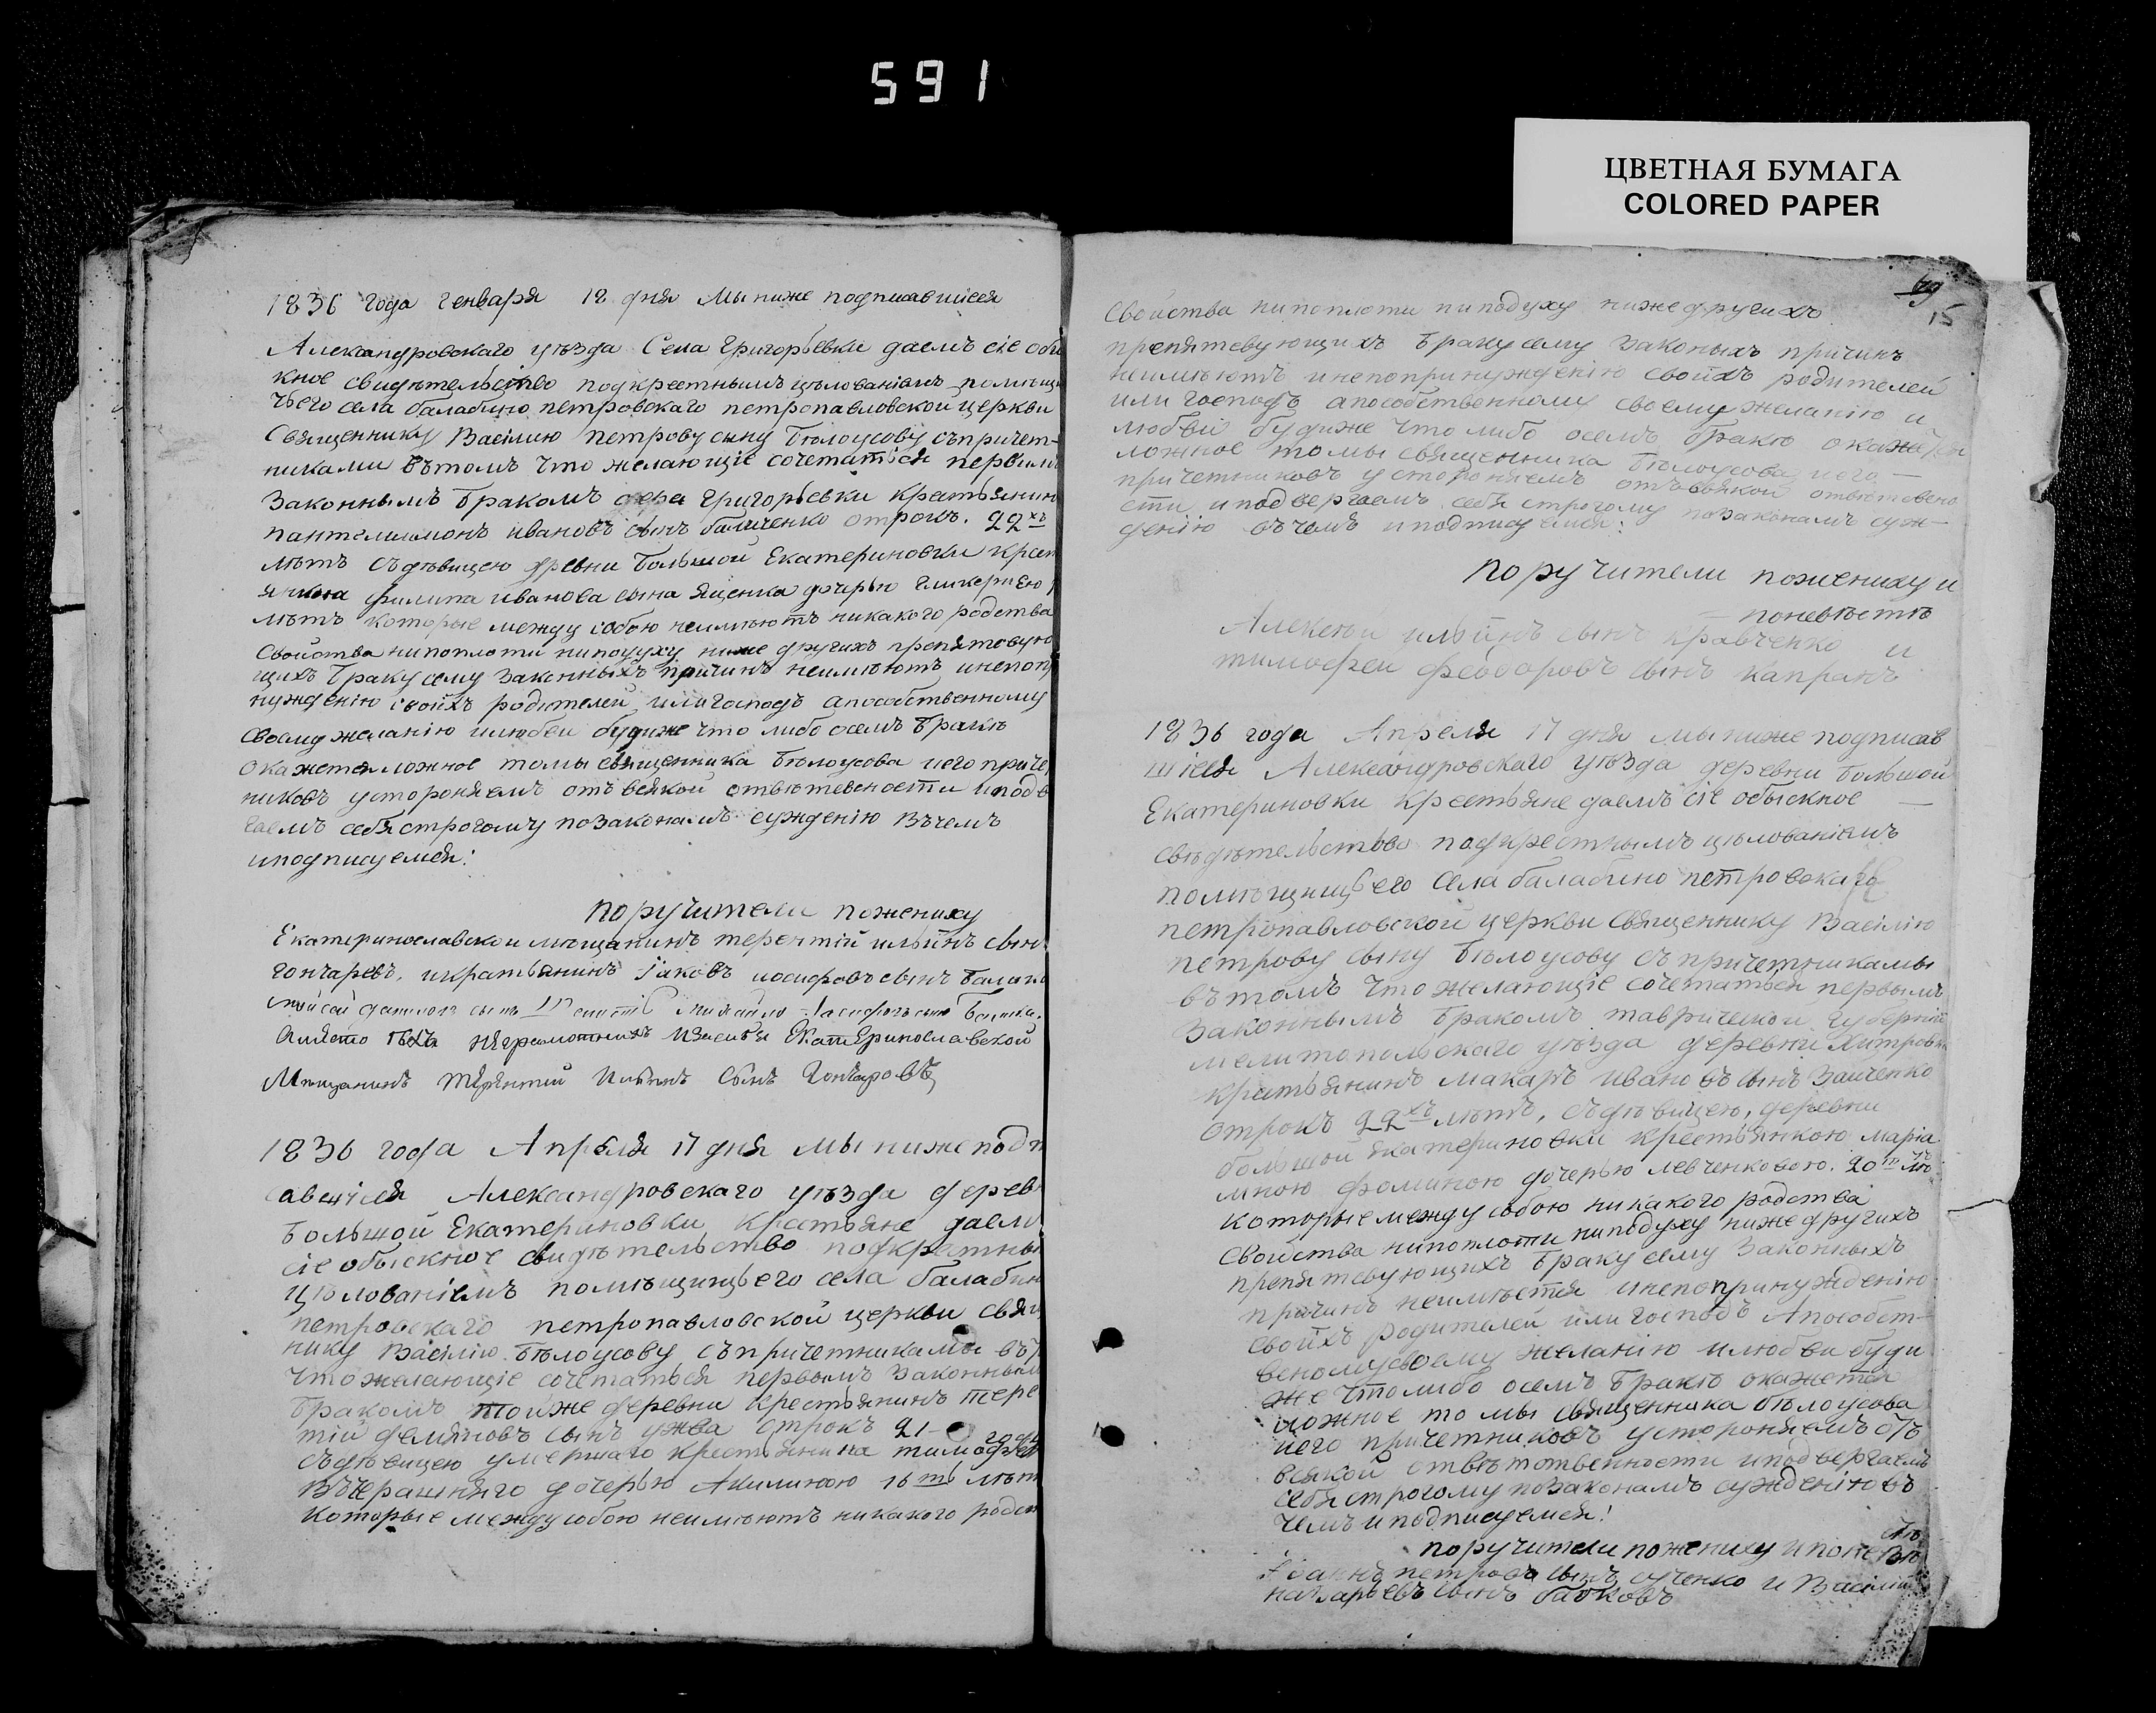 591
ЦВЕТНАЯ БУМАГА
COLORED PAPER
1836 года генваря 18 дня Мы ниже подписавшіеся
Александровскаго уѣзда Села Григорьевки даемъ сіе обы
кное свидѣтельство подкрестнымъ цѣлованіемъ помѣщи
чьего села балабино петровскаго петропавловской церкви
Священнику Васілию петрову сыну Бѣлоусову съпричет-
никами вътомъ что желающіе сочетатьея первымъ
Законнымъ бракомъ села Григорьевки крестьянин
пантелиимонъ ивановъ сынъ отрокъ. 22хъ
лѣтъ съдѣвицею древни Большой Екатериновки крест
янина филипа иванова сына яценка дочерью гликериею
лѣтъ которые между собою неимѣютъ никакого родства
Свойства нипоплоти ниподуху ниже другихъ препятсвую
щихъ браку сему Законныхъ причинъ неимѣютъ инепопр
нужденію своихъ родителей или господъ апособственному
своему желанію илюбви будиже что либо осемъ бракѣ
окажется ложное томы священника Бѣлоусова иего приче
никовъ устороняемъ отъвсякой отвѣтсвености иподв
гаемъ себя строгому позаконамъ сужденію Въчемъ
иподписуемся:
поручители поженику
Екатеринославской мѣщанинъ терентій ильинъ сынъ
гончаревъ, икрестьянинъ іаковъ иосифовъ сынъ
Михайло
Амѣсто ихъ неграмотнихъ Екатеринославской
Мещанинъ Терентий Ильинъ Сынъ Гончаровъ
1836 года Апреля 17 дня мы ниже подп
савшіеся Александровскаго уѣзда дерев
Большой Екатериновки крестьяне даемъ
сіе обыскное свидѣтельство подкрестны
цѣлованіемъ помѣщицьего села балабин
петровскаго петропавловской церкви свящ
нику Васілію Бѣлоусову съпричетниками въ
что желающіе сочетаться первымъ Законным
бракомъ тойже деревни крестьянинъ тере
тій демяновъ сынъ ужва отрокъ 21- года
съдѣвицею умершаго крестьянина тимофея
Вѣчерашняго дочерью Акилиною 16ть лѣт
которые между собою неимѣютъ никакого родст
69
15
свойства нипоплоти ниподуху ниже другихъ
препятсвующихъ браку сему законыхъ причинъ
неимѣютъ инепопринужденію своихъ родителей
или господъ апособственному своему желанию и
любви будиже что либо осемъ бракѣ окажется
ложное томы священника Бѣлоусова иего
причетниковъ устороняемъ отъвсякой отвѣтсвено
сти иподвергаемъ себя строгому позаконамъ суж-
денію въчемъ иподписуемся:
поручители поженику и
поневѣстѣ
Алексеи ильинъ сынъ кравченко и
тимофеи феодоровъ сынъ капранъ
1836 года Апреля 17 дня мы ниже подписав
шіеся Александровскаго уѣзда деревни большой
Екатериновки крестьяне даемъ сіе обыскное
свѣдѣтельство подкрестнымъ цѣлованіемъ
помѣщицьего села балабино петровскаго
петропавловской церкви священнику Васілію
петрову сыну Бѣлоусову съпричетникамы
вътомъ что желающіе сочетаться первымъ
Законнымъ бракомъ таврической губерніи
мелитопольскаго уѣзда деревни
крестьянинъ макаръ ивановъ сынъ Заиченко
отрокъ 22хъ лѣтъ, съдѣвицею, деревни
большой екатериновки крестьянкою маріа
мною фоминою дочерью левченковою. 20ть лѣ
которые между собою никакого родства
свойства нипоплоти ниподуху ниже другихъ
препятсвующихъ браку сему Законныхъ
причинъ неимѣется инепопринужденію
своихъ родителей или господъ Апособст-
веному своему желанію илюбви буди
же чтолибо осемъ бракѣ окажется
ложное то мы священника бѣлоусова
иего причетниковъ устороняемъ отъ
всякой ответственности иподвергаемъ
себя строгому позаконамъ сужденію въ
чемъ иподписуемся!
поручители поженику ипоневѣ
стѣ
Іоаннъ петровъ сынъ и Васілій
назарьевъ сынъ бабковъ